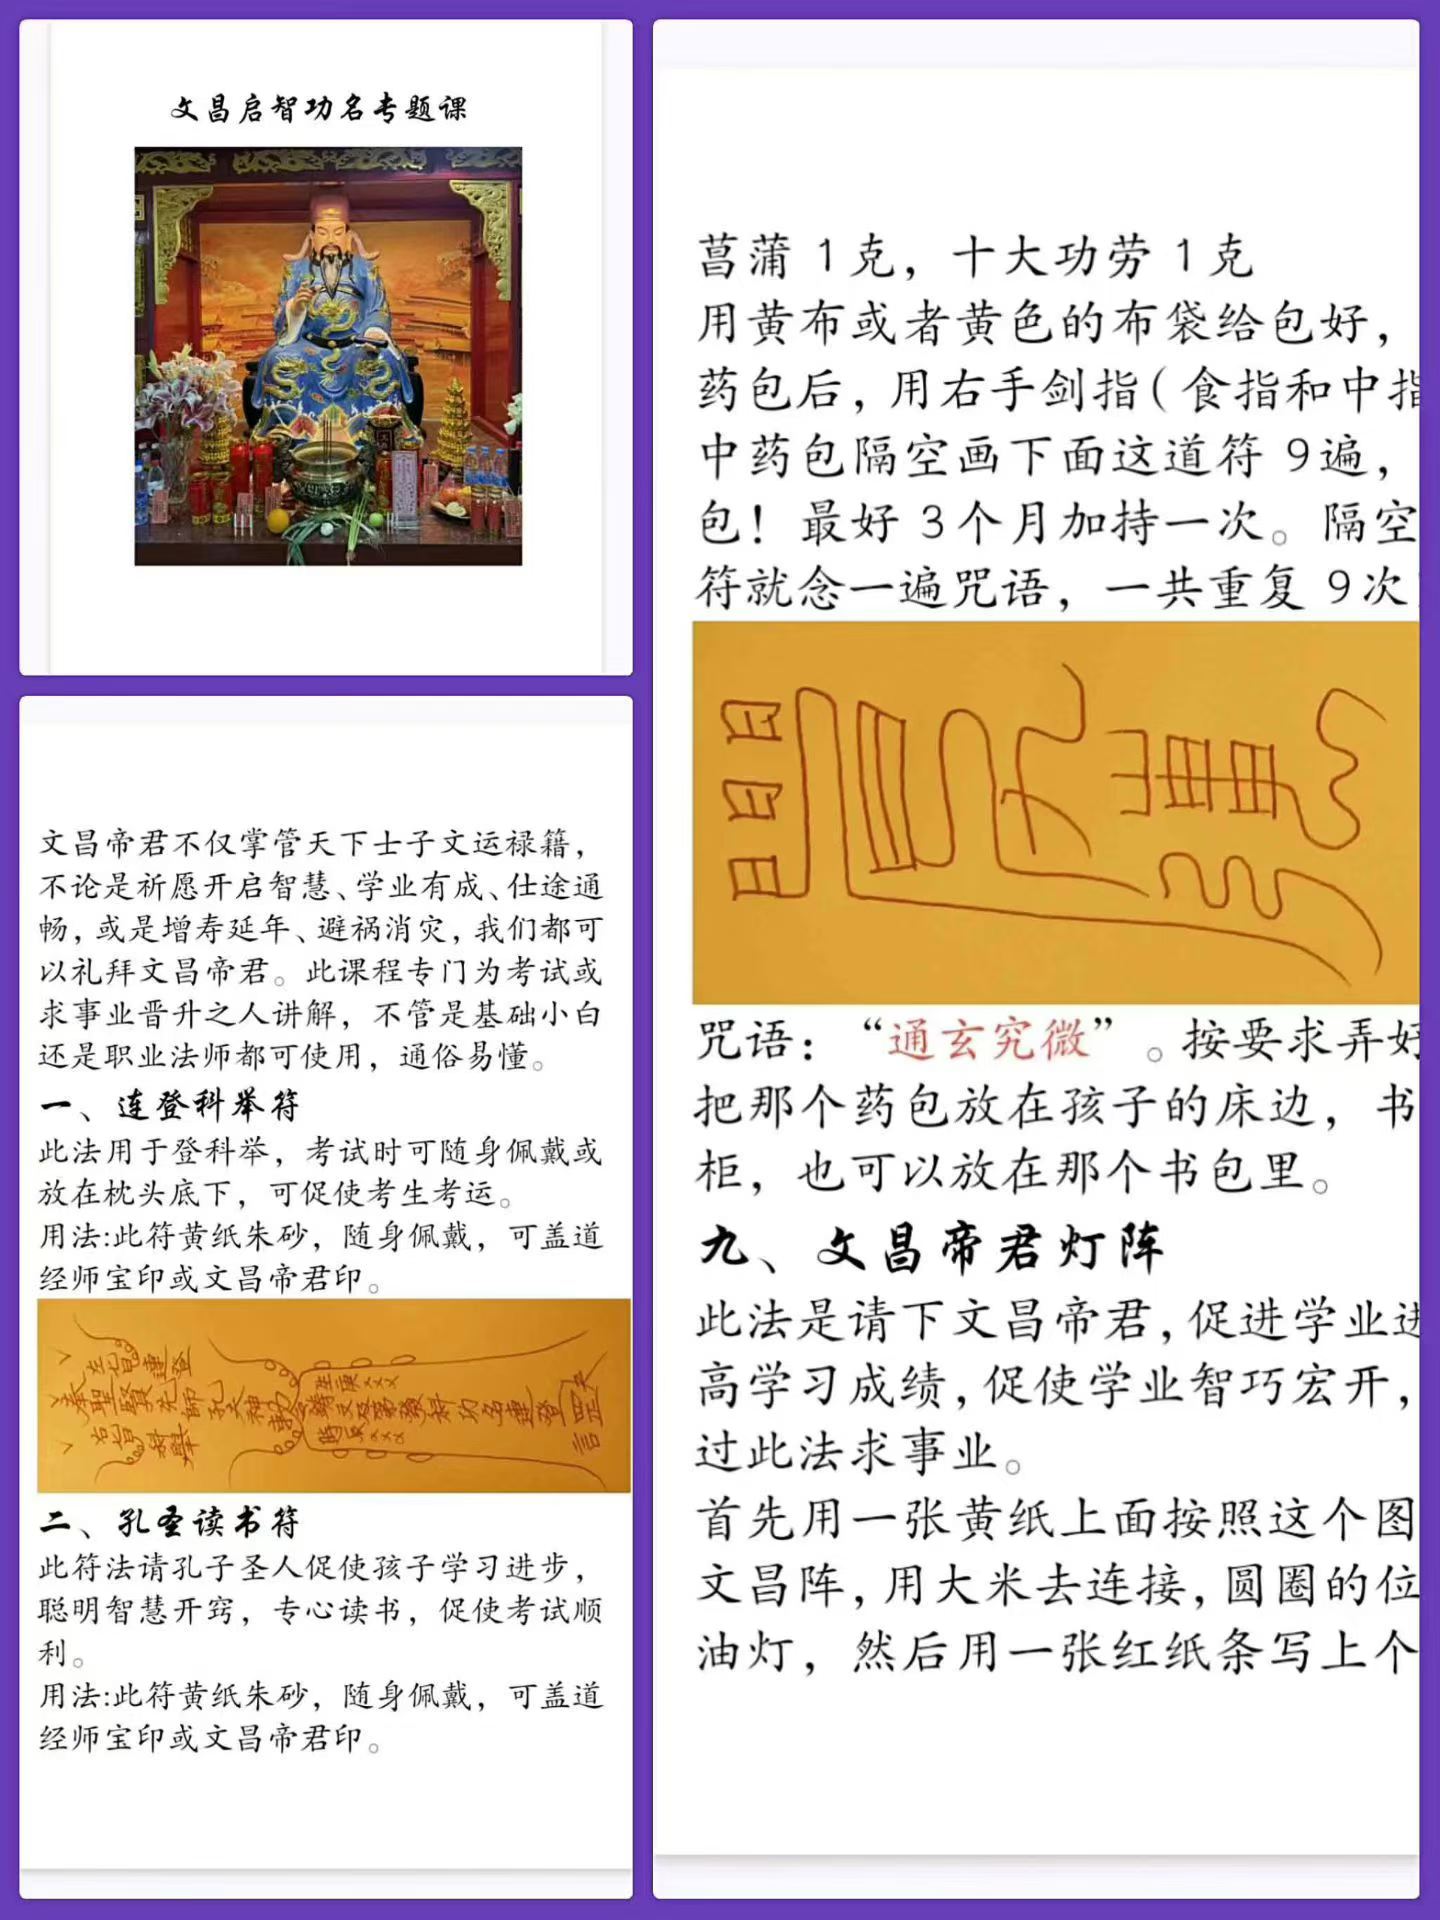 文昌启智功名专题课
文昌帝君不仅掌管天下士子文运禄籍，
不论是祈愿开启智慧、学业有成、仕途通
畅，或是增寿延年、避祸消灾，我们都可
以礼拜文昌帝君。此课程专门为考试或
求事业晋升之人讲解，不管是基础小白
还是职业法师都可使用，通俗易懂。
一、连登科举符
此法用于登科举，考试时可随身佩戴或
放在枕头底下，可促使考生考运。
用法:此符黄纸朱砂，随身佩戴，可盖道
经师宝印或文昌帝君印。
二、孔圣读书符
此符法请孔子圣人促使孩子学习进步，
聪明智慧开窍，专心读书，促使考试顺
利。
用法:此符黄纸朱砂，随身佩戴，可盖道
经师宝印或文昌帝君印。
菖蒲 1克，十大功劳 1克
用黄布或者黄色的布袋给包好，
药包后，用右手剑指（食指和中指
中药包隔空画下面这道符 9遍，
包！最好 3个月加持一次。隔空
符就念一遍咒语，一共重复 9次
咒语：“通玄究微”。按要求弄好
把那个药包放在孩子的床边，书
柜，也可以放在那个书包里。
九、文昌帝君灯阵
此法是请下文昌帝君,促进学业进
高学习成绩,促使学业智巧宏开,
过此法求事业。
首先用一张黄纸上面按照这个图
文昌阵,用大米去连接,圆圈的位
油灯，然后用一张红纸条写上个